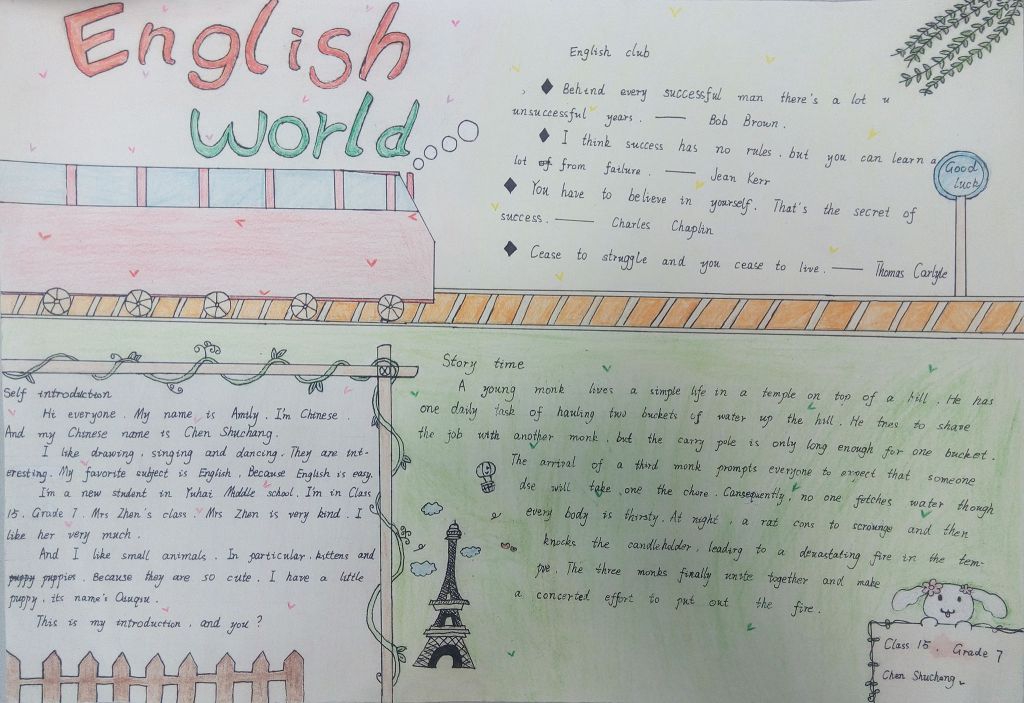 English
world
English club
◆ Behind every successful man there's a lot u
unsuccessful years. —— Bob Brown.
◆ I think success has no rules, but you can learn a
lot of from failure. —— Jean Kerr
◆ You have to believe in yourself. That's the secret of
success. —— Charles Chaplin
◆ Cease to struggle and you cease to live. —— Thomas Carlyle
Good
luck
Self introduction
Hi everyone. My name is Amily. I'm Chinese.
And my Chinese name is Chen Shuchang.
I like drawing, singing and dancing. They are int-
eresting. My favorite subject is English. Because English is easy.
I'm a new student in Yuhai Middle school. I'm in Class
15. Grade 7. Mrs Zhen's class. Mrs Zhen is very kind. I
like her very much.
And I like small animals. In particular, kittens and
puppy puppies. Because they are so cute. I have a little
puppy, its name's
This is my introduction, and you?
Story time
A young monk lives a simple life in a temple on top of a hill. He has
one daily task of hauling two buckets of water up the hill. He tries to share
the job with another monk, but the carry pole is only long enough for one bucket.
The arrival of a third monk prompts everyone to expect that someone
else will take one the chore. Consequently, no one fetches water though
every body is thirsty. At night, a rat cons to scrounge and then
knocks the candleholder, leading to a devastating fire in the tem-
ple. The three monks finally unite together and make
a concerted effort to put out the fire.
Class 15. Grade 7
Chen Shuchang